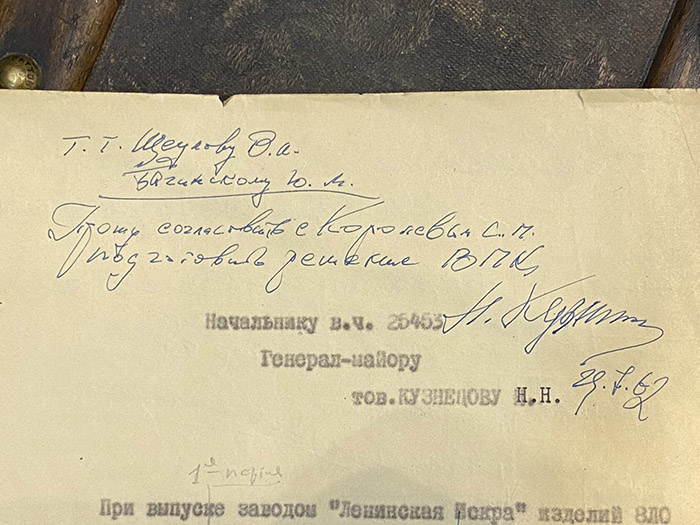 т. т. Щеулову В.А.
Вагинскому Ю. М.
Прошу согласовать с Королевым С. П.
подготовить решение ВПК,
Начальнику в.ч. 25453 Н.
Генерал-майору
тов. КУЗНЕЦОВУ Н.Н. 29.7.62
1ый
При выпуске заводом "Ленинская Искра" изделий 8Л0